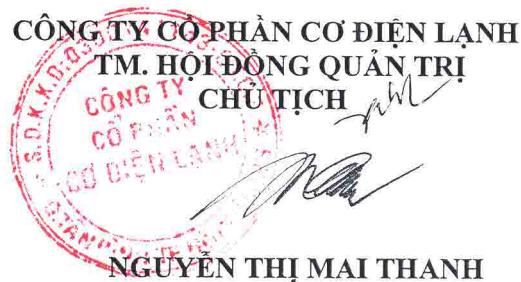 CÔNG TY CỔ PHẦN CƠ ĐIỆN LẠNH
TM. HỘI ĐỒNG QUẢN TRỊ
CHỦ TỊCH
CÔNG TY
CỔ PHẦN
CƠ ĐIỆN LẠNH
NGUYỄN THỊ MAI THANH